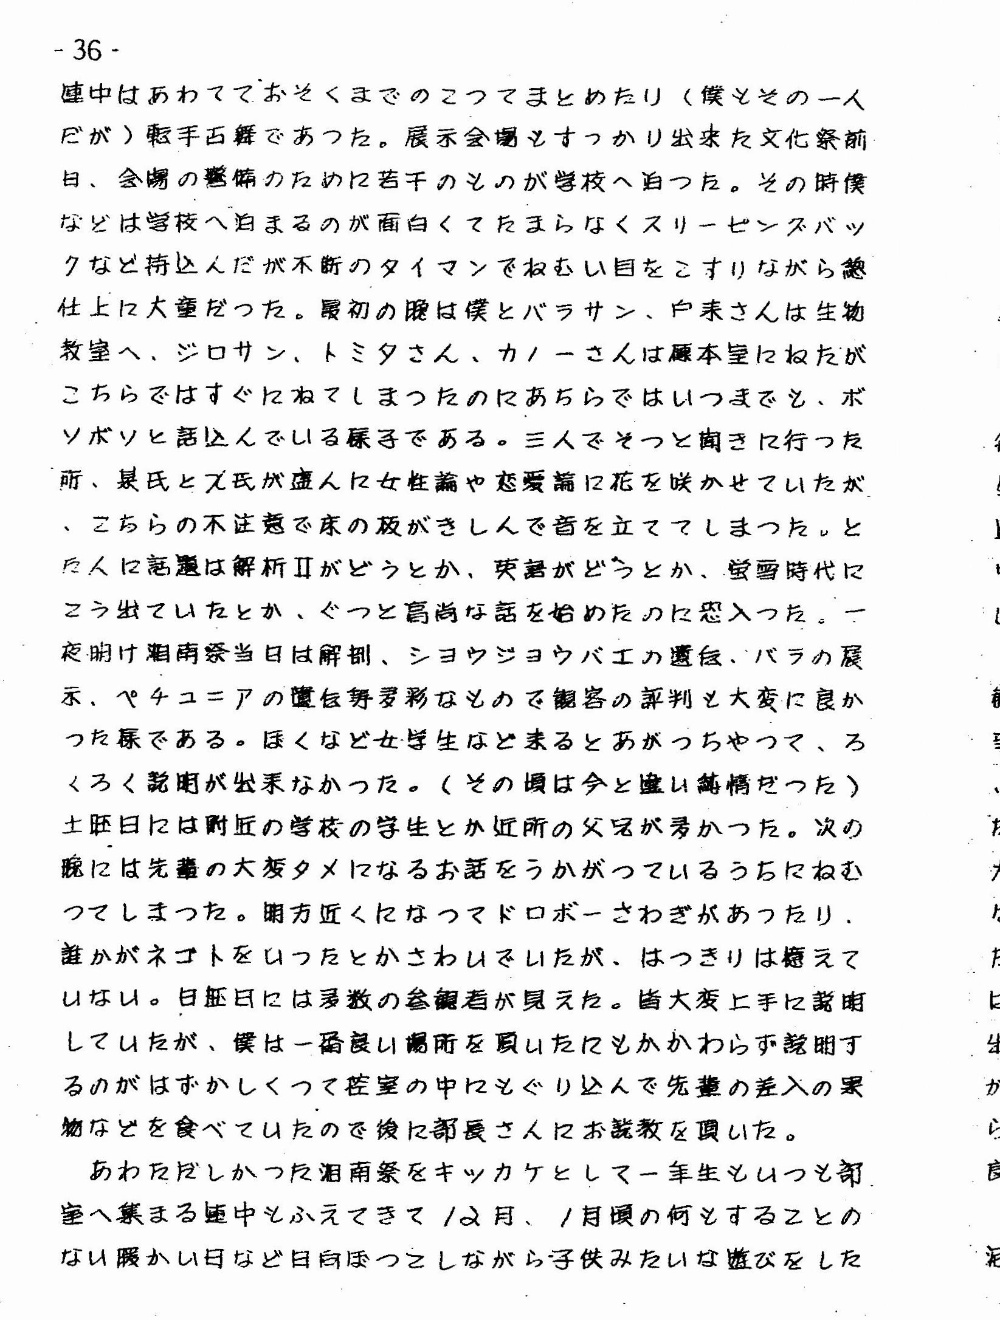 - 36 -
連中はあわてておそくまでのこつてまとめたり（僕もその一人
だが）転手古舞であつた。展示会場もすっかり出来た文化祭前
日、会場の警備のために若干のものが学校へ泊つた。その時僕
などは学校へ泊まるのが面白くてたまらなくスリーピングバッ
クなど持込んだが不断のタイマンでねむい目をこすりながら総
仕上に大童だつた。最初の晩は僕とバラサン、戸来さんは生物
教室へ、ジロサン、トミタさん、カノーさんは標本室にねたが
こちらではすぐにねてしまつたのにあちらではいつまでも、ボ
ソボソと話込んでいる様子である。三人でそつと聞きに行った
所、某氏とズ氏が盛んに女性論や恋愛論に花を咲かせていたが
、こちらの不注意で床の板がきしんで音を立ててしまつた。と
たんに話題は解析Ⅱがどうとか、英語がどうとか、蛍雪時代に
こう出ていたとか、ぐつと高尚な話を始めたのに恐入つた。一
夜明け湘南祭当日は解剖、シヨウジヨウバエの遺伝、バラの展
示、ペチユニアの遺伝等多彩なもので観客の評判も大変に良か
つた様である。ぼくなど女学生など来るとあがつちやつて、ろ
くろく説明が出来なかつた。（その頃は今と違い純情だつた）
土曜日には附近の学校の学生とか近所の父兄が多かつた。次の
晩には先輩の大変タメになるお話をうかがつているうちにねむ
つてしまつた。明方近くになつてドロボーさわぎがあつたり、
誰かがネゴトをいつたとかさわいでいたが、はつきりは憶えて
いない。日曜日には多数の参観者が見えた。皆大変上手に説明
していたが、僕は一番良い場所を頂いたにもかかわらず説明す
るのがはずかしくつて控室の中にもぐり込んで先輩の差入の果
物などを食べていたので後に部長さんにお説教を頂いた。
あわただしかつた湘南祭をキッカケとして一年生もいつも部
室へ集まる連中もふえてきて12月、1月頃の何もすることの
ない暖かい日など日向ぼつこしながら子供みたいな遊びをした